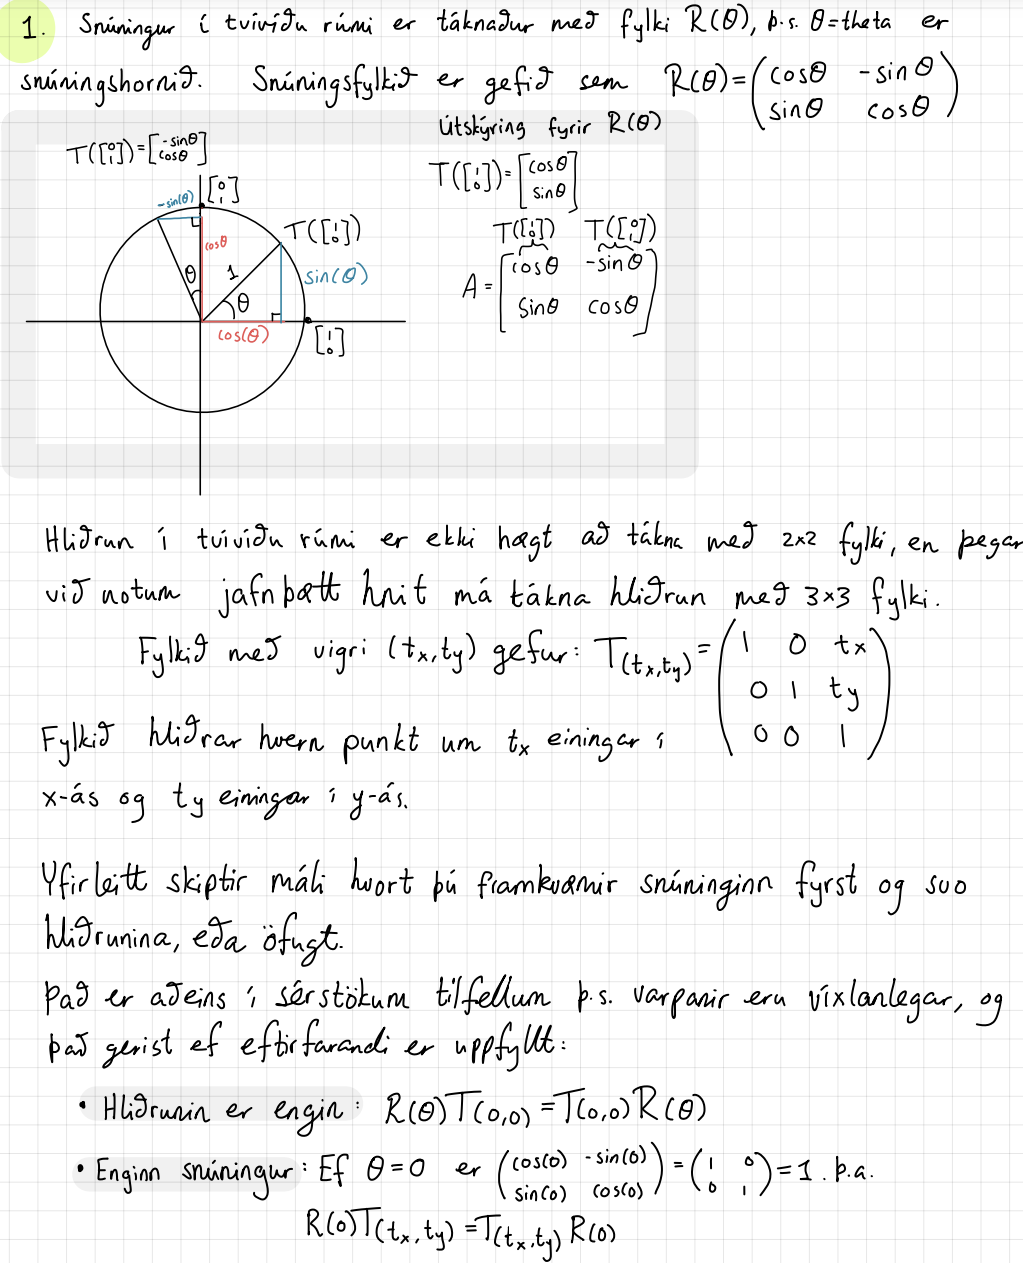 1. Snúningur í tvívíðu rúmi er táknaður með fylki R(θ), þ.s. θ=theta er
snúningshornið. Snúningsfylkið er gefið sem R(θ)=(cosθ -sinθ
sinθ cosθ)
Útskýring fyrir R(θ)
T([0 1])=[-sinθ cosθ]
T([1 0])=[cosθ sinθ]
-sin(θ) [0 1]
T([1 0]) T([0 1])
cosθ T([1 0])
A=[cosθ -sinθ
sinθ cosθ]
θ 1 sin(θ)
θ
cos(θ) [1 0]
Hliðrun í tvívíðu rúmi er ekki hægt að tákna með 2×2 fylki, en þegar
við notum jafnþætt hnit má tákna hliðrun með 3×3 fylki.
Fylkið með vigri (tx,ty) gefur: T(tx,ty)=(1 0 tx
0 1 ty
0 0 1)
Fylkið hliðrar hvern punkt um tx einingar í
x-ás og ty einingar í y-ás.
Yfirleitt skiptir máli hvort þú framkvæmir snúninginn fyrst og svo
hliðrunina, eða öfugt.
Það er aðeins í sérstökum tilfellum þ.s. varpanir eru víxlanlegar, og
það gerist ef eftirfarandi er uppfyllt:
• Hliðrunin er engin: R(θ)T(0,0)=T(0,0)R(θ)
• Enginn snúningur: Ef θ=0 er (cos(0) -sin(0)
sin(0) cos(0))=(1 0
0 1)=1. þ.a.
R(0)T(tx,ty)=T(tx,ty)R(0)